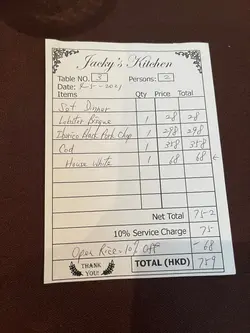 Jacky's Kitchen
Table NO. 3 Persons: 2
Date: 9-5-2021
Items Qty Price Total
Set Dinner
Lobster Bisque 1 28 28
Iberico Black Pork Chop 1 298 298
Cod 1 358 358
House White 1 68 68
Net Total 752
10% Service Charge 75
Open Rice - 10% Off - 68
THANK YOU! TOTAL (HKD) 759